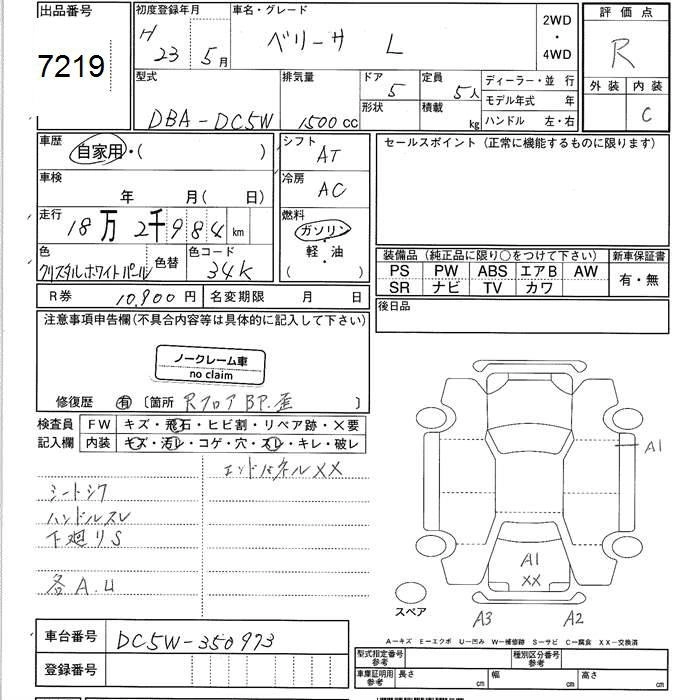 出品番号
7219
初度登録年月
H 23 5月
車名・グレード
ベリーサ L
2WD
・
4WD
評価点
R
外装 内装
C
型式
DBA-DC5W
排気量
1500cc
ドア
5
形状
定員
5人
積載
kg
ディーラー・並 行
モデル年式 年
ハンドル 左・右
車歴
自家用・( )
シフト
AT
車検
年 月( 日)
冷房
AC
走行
18万2千984km
燃料
ガソリン
軽・油
( )
色
クリスタルホワイトパール
色替
色コード
34K
セールスポイント(正常に機能するものに限ります)
装備品(純正品に限り○をつけて下さい)
新車保証書
PS PW ABS エアB AW
有・無
SR ナビ TV カワ
R券 10,900円
名変期限 月 日
後日品
注意事項申告欄(不具合内容等は具体的に記入して下さい)
ノークレーム車
no claim
修復歴 有 〔箇所 RフロアBP.歪 〕
検査員
記入欄
FW キズ・飛石・ヒビ割・リペア跡・×要
内装 キズ・汚レ・コゲ・穴・スレ・キレ・破レ
エンドパネルXX
シートシワ
ハンドルスレ
下廻りS
各A.U
A1
A1
XX
スペア
A3
A2
A-キズ E-エクボ U-凹み W-補修跡 S-サビ C-腐食 XX-交換済
車台番号
DC5W-350973
登録番号
型式指定番号
参考
種別区分番号
参考
車庫証明用
参考
長さ cm
幅 cm
高さ cm